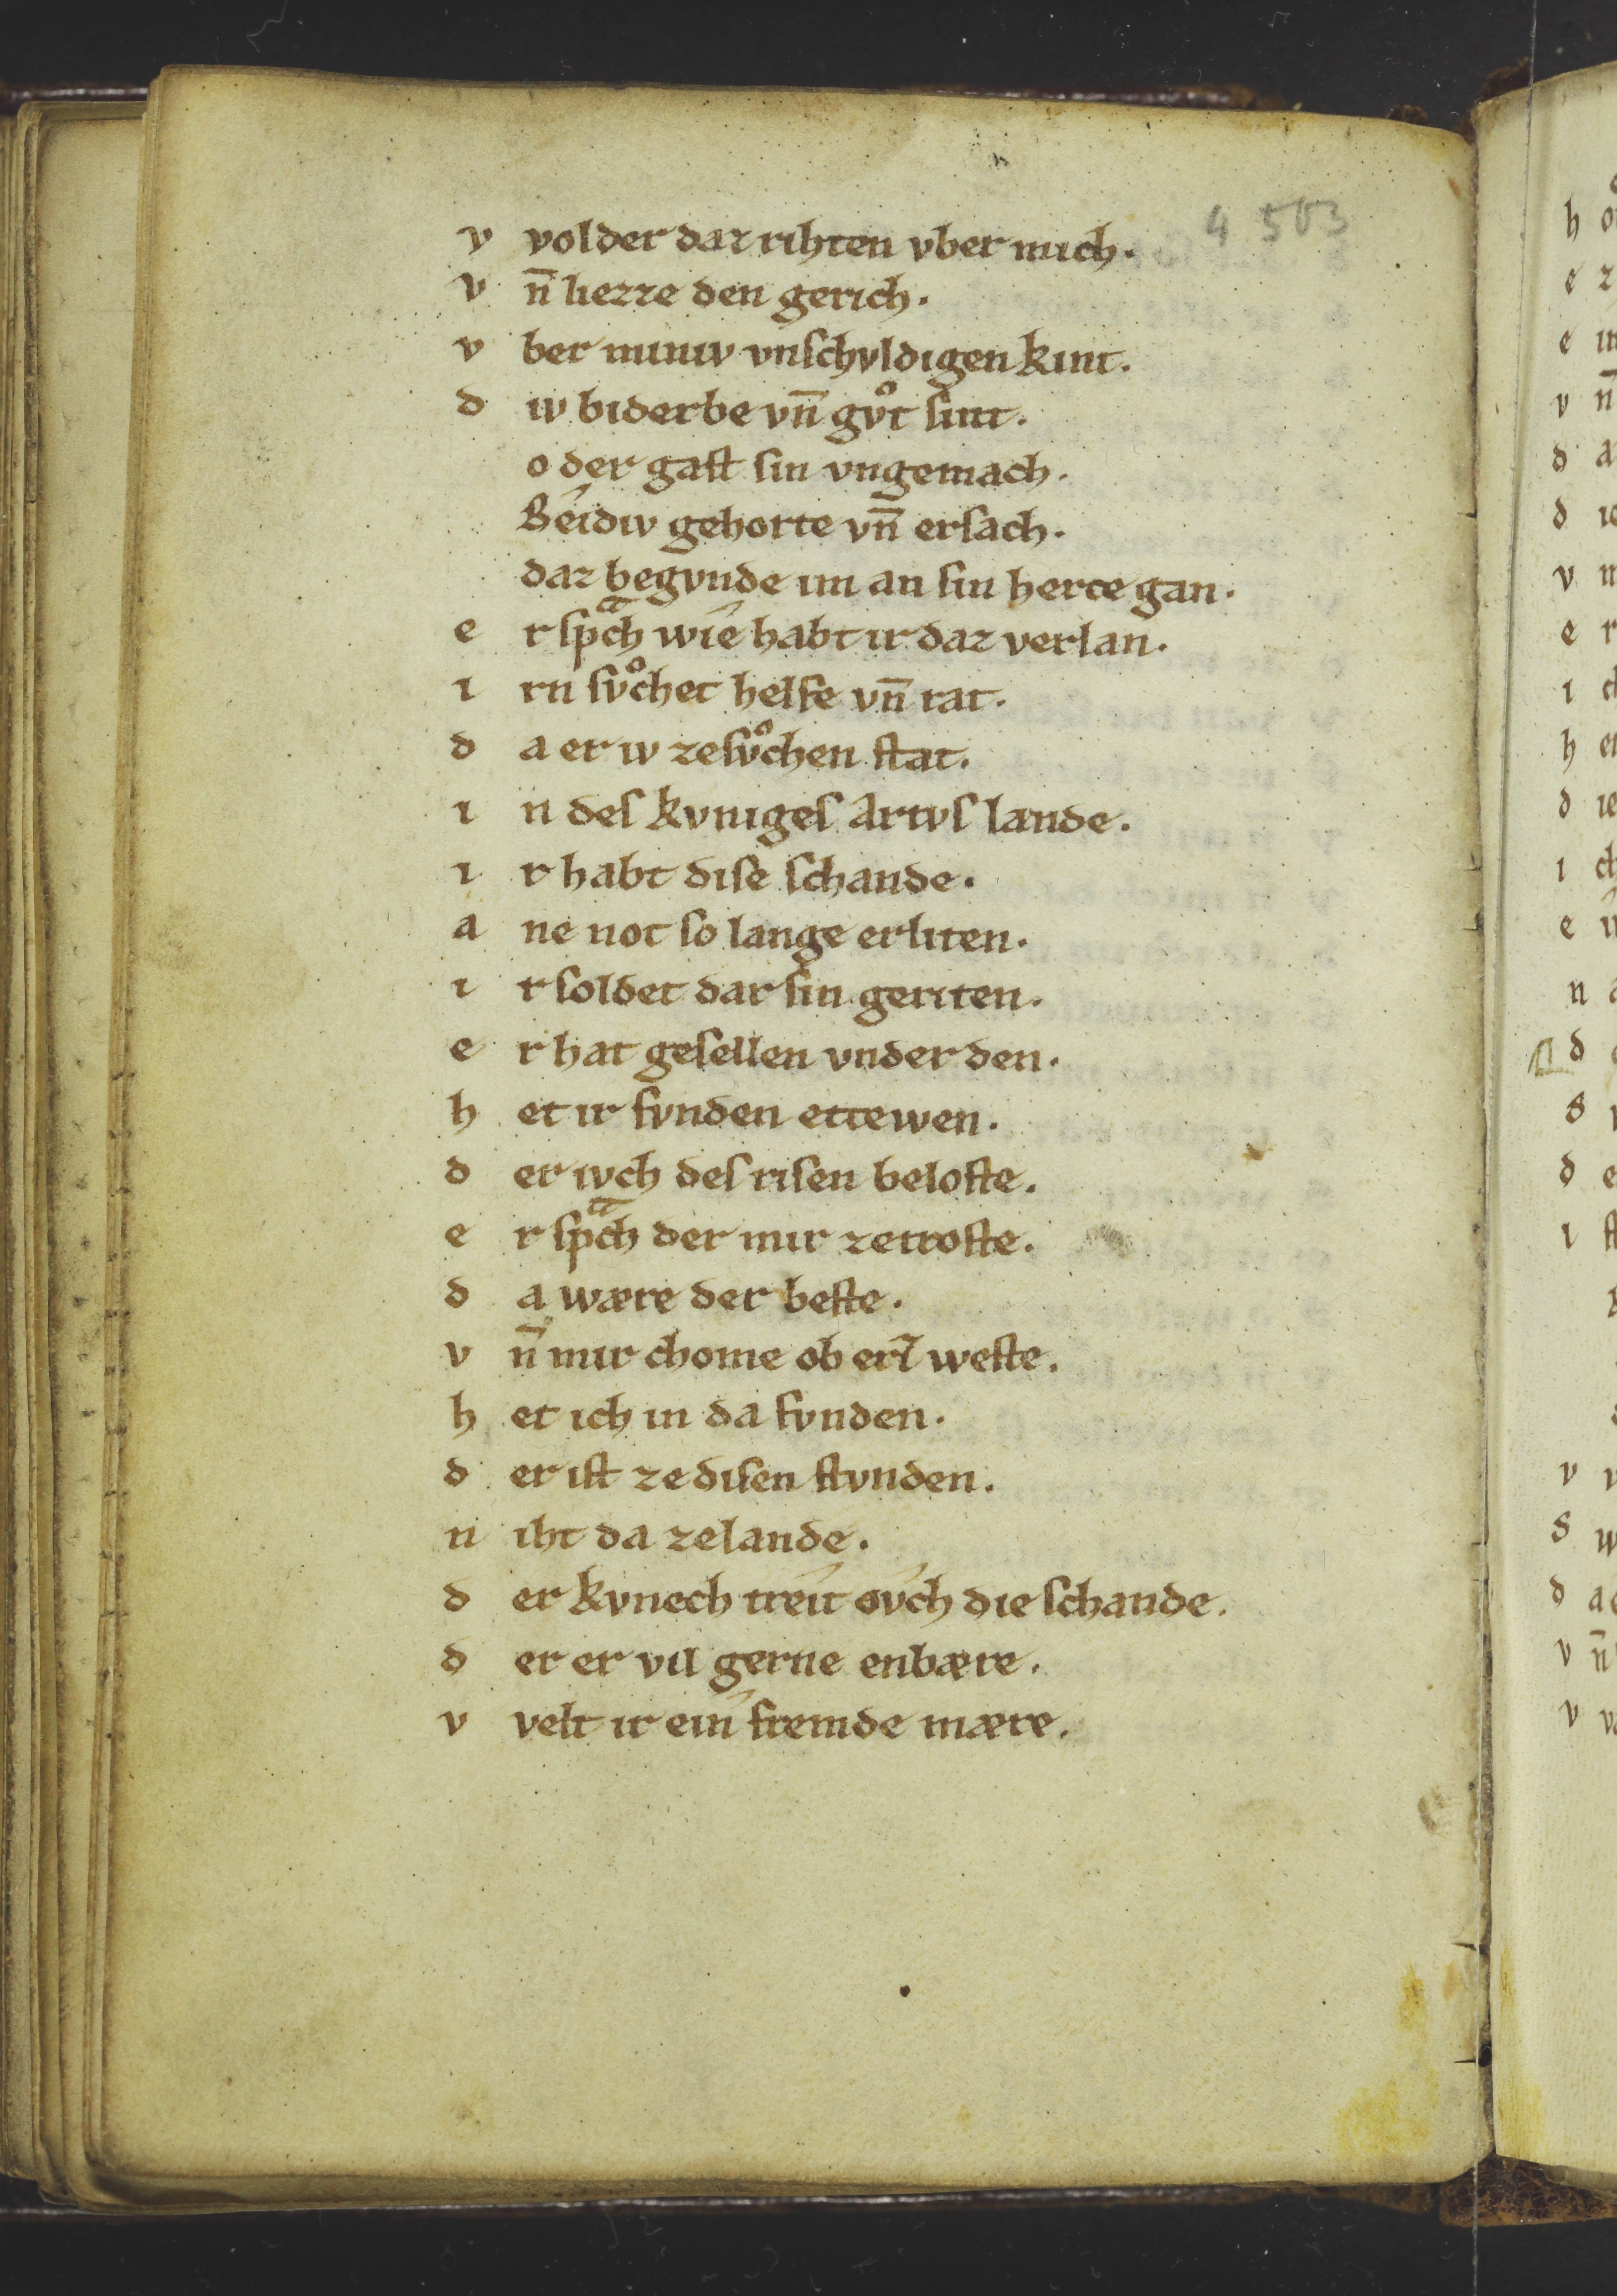 4503
v volder daz rihten vber mich.
v n̄ liezze den gerich.
v ber miniv vnschvldigen kint.
d iv biderbe vn̄ gvͦt sint.
o der gast sin vngemach.
Béidiv gehorte vn̄ ersach.
daz begvnde im an sin herce gan.
e r spͣch wíe habt ir daz verlan.
i rn svͦchet helfe vn̄ rat.
d a er iv zesvͦchen stat.
i n des kvniges Artvs lande.
i r habt dise schande.
a ne not so lange erliten.
i r soldet dar sin geriten.
e r hat gesellen vnder den.
h et ir fvnden ettewen.
d er ivch des risen beloste.
e r spͣch der mir zetroste.
d a wære der beste.
v n̄ mir chome ob erz weste.
h et ich in da fvnden.
d er ist ze disen stvnden.
n iht da zelande.
d er kvnech tréit óvch die schande.
d er er vil gerne enbære.
v velt ir eín fremde mære.